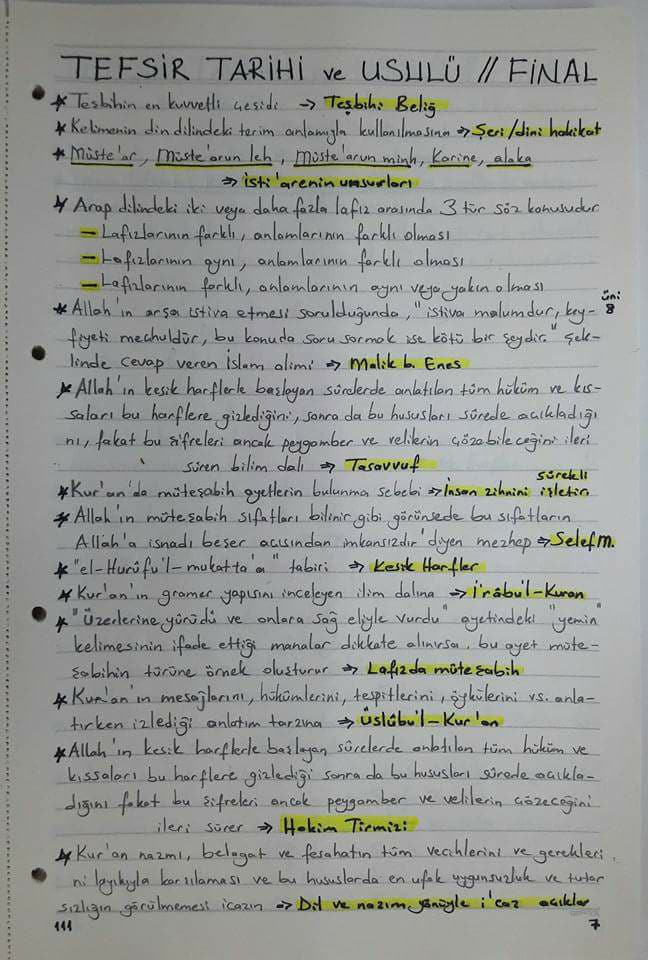 TEFSİR TARİHİ ve USULÜ // FİNAL
* Teşbihin en kuvvetli çeşidi → Teşbihi Beliğ
* Kelimenin din dilindeki terim anlamıyla kullanılmasına → Şeri/dini hakikat
* Müste'ar, Müste'arun leh, Müste'arun minh, Karine, alaka
→ isti'arenin unsurları
* Arap dilindeki iki veya daha fazla lafız arasında 3 tür söz konusudur
– Lafızlarının farklı, anlamlarının farklı olması
– Lafızlarının aynı, anlamlarının farklı olması
– Lafızlarının farklı, anlamlarının aynı veya yakın olması
üni 8
* Allah'ın arşa istiva etmesi sorulduğunda, "istiva malumdur, key-
fiyeti meçhuldür, bu konuda soru sormak ise kötü bir şeydir." şek-
linde cevap veren İslam alimi → Malik b. Enes
* Allah'ın kesik harflerle başlayan sûrelerde anlatılan tüm hüküm ve kıs-
saları bu harflere gizlediğini, sonra da bu hususları sûrede açıkladığı
nı, fakat bu şifreleri ancak peygamber ve velilerin çözebileceğini ileri
süren bilim dalı → Tasavvuf
* Kur'an'da müteşabih ayetlerin bulunma sebebi → İnsan zihnini sürekli işletir
* Allah'ın müteşabih sıfatları bilinir gibi görünsede bu sıfatların
Allah'a isnadı beşer açısından imkansızdır' diyen mezhep → Selef m.
* "el-Hurûfu'l-mukatta'a" tabiri → Kesik Harfler
* Kur'an'ın gramer yapısını inceleyen ilim dalına → İ'râbu'l-Kuran
* "Üzerlerine yürüdü ve onlara sağ eliyle vurdu" ayetindeki "yemin"
kelimesinin ifade ettiği manalar dikkate alınırsa, bu ayet müte-
şabihin türüne örnek oluşturur → Lafızda müteşabih
* Kur'an'ın mesajlarını, hükümlerini, tespitlerini, öykülerini vs. anla-
tırken izlediği anlatım tarzına → Üslûbu'l-Kur'an
* Allah'ın kesik harflerle başlayan sûrelerde anlatılan tüm hüküm ve
kıssaları bu harflere gizlediği sonra da bu hususları sûrede açıkla-
dığını fakat bu şifreleri ancak peygamber ve velilerin çözeceğini
ileri sürer → Hakim Tirmizi
* Kur'an nazmı, belagat ve fesahatın tüm vecihlerini ve gerekleri
ni layıkıyla karşılaması ve bu hususlarda en ufak uygunsuzluk ve tutar
sızlığın görülmemesi icazın → Dil ve nazım yönüyle i'caz açıklar
111 7